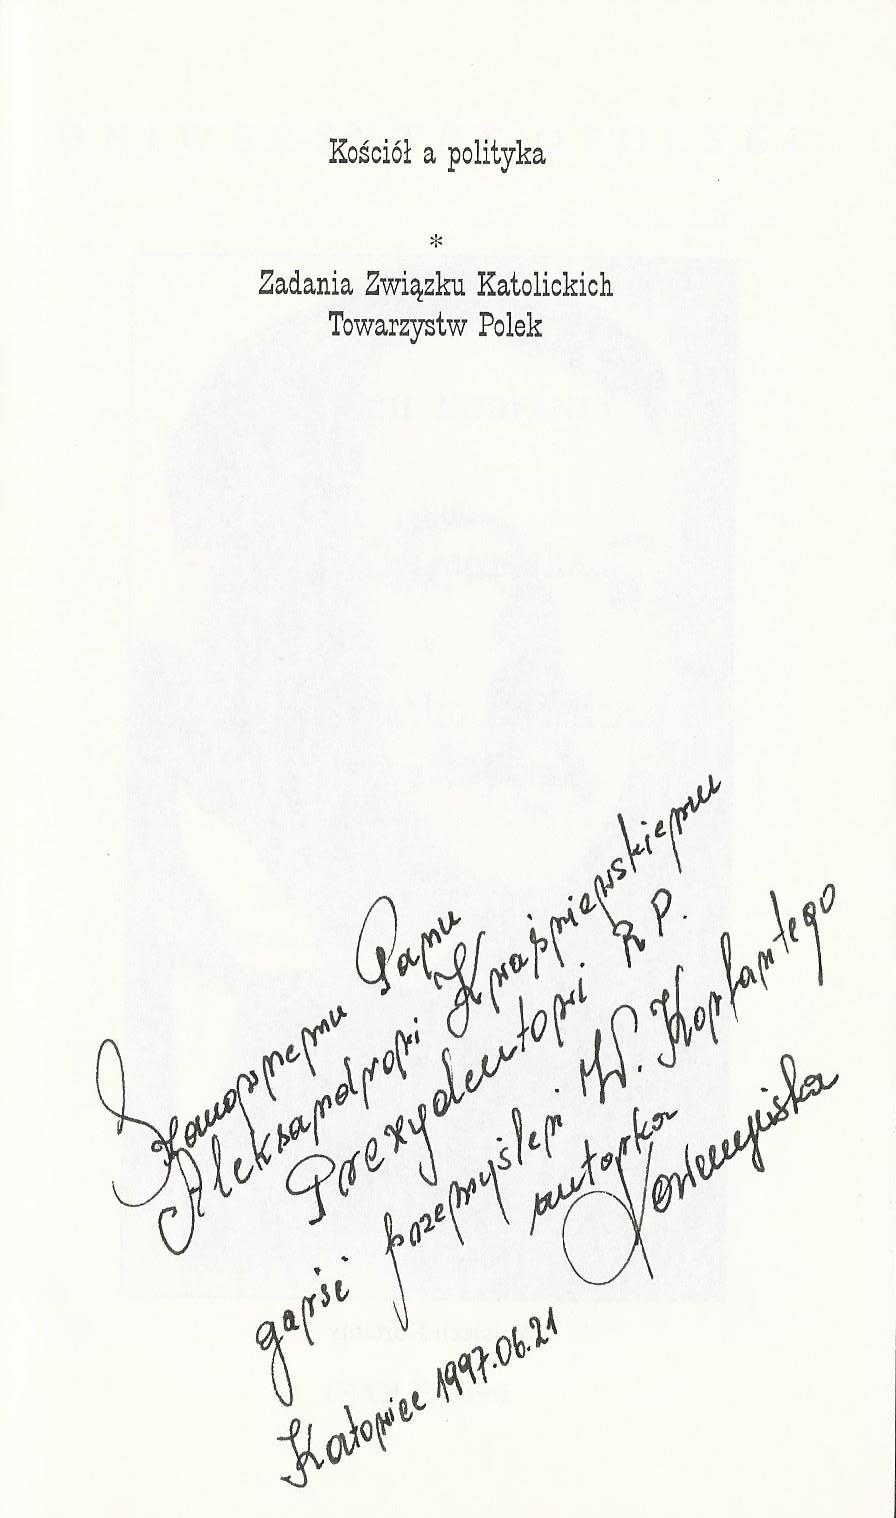 Kościół a polityka
*
Zadania Związku Katolickich
Towarzystw Polek
Szanownemu Panu
Aleksandrowi Kwaśniewskiemu
Prezydentowi RP.
garść przemyśleń W. Korfantego
autorka
Katowice 1997.06.21